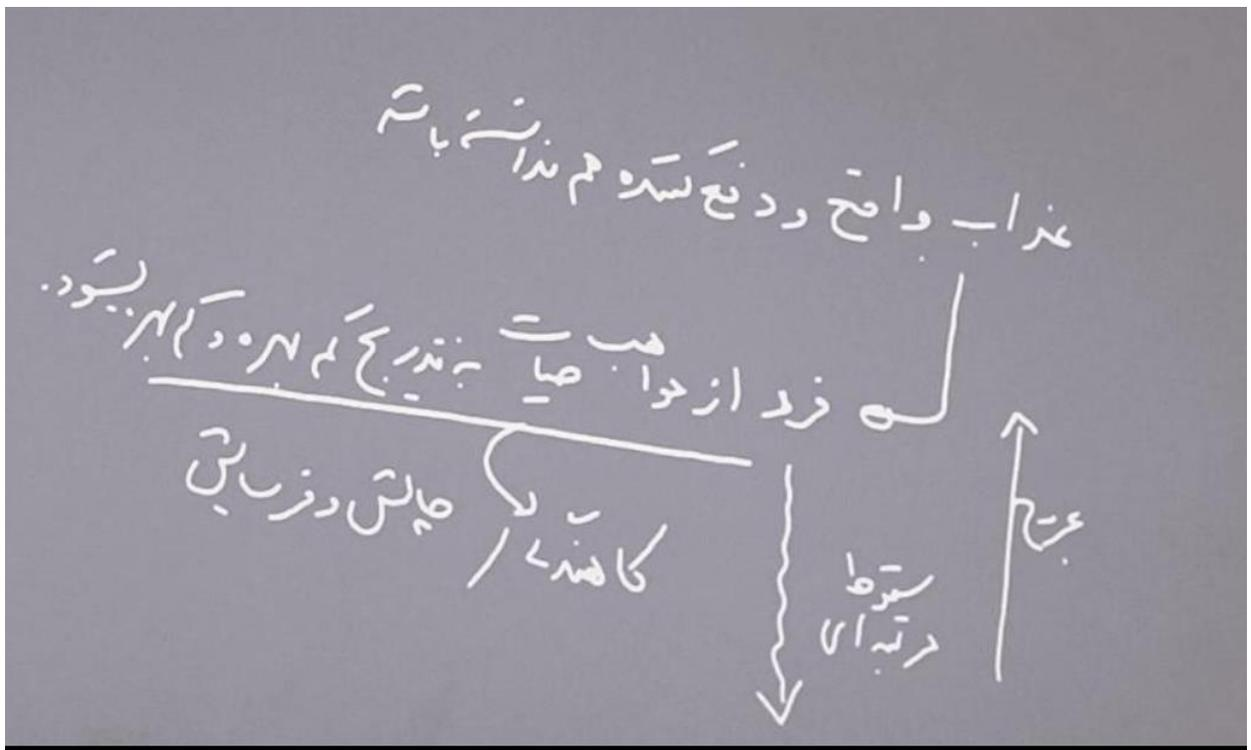 عذاب واقع و دفع کننده هم نداشته باشد
فرد از مواهب حیات به تدریج کم بهره و کم بهره‌تر بشود.
کاهندگی / چالش و فرسایش
سقوط
مرتبه ای
عروج